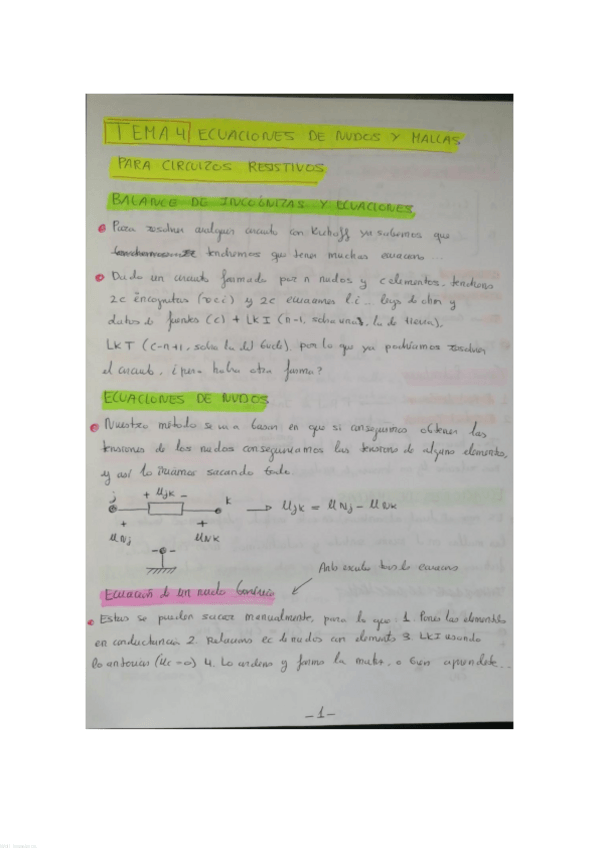 TEMA 4 ECUACIONES DE NUDOS Y MALLAS
PARA CIRCUITOS RESISTIVOS
BALANCE DE INCÓGNITAS Y ECUACIONES
Para resolver cualquier circuito con Kirhoff ya sabemos que
tendremos que tener muchas ecuaciones...
Dado un circuito formado por n nudos y c elementos, tendremos
2c incognitas y 2c ecuaciones
datos de fuentes (c) + LKI (n-1, la de tierra),
LKT (c-n+1, solo la del bucle), por lo que ya podríamos resolver
el circuito, ¿pero habra otra forma?
ECUACIONES DE NUDOS
Nuestro método se va a basar en que si conseguimos obtener las
tensiones de los nudos conseguiríamos las tensiones de alguno elementos,
y así lo sacando todo
j + Ujk - k → Ujk = UNj - UNk
+ +
UNj UNk
- -
Ecuación de un nudo Genérico
Estas se pueden sacar manualmente, para lo que 1. Pones los elementos
en conductancia 2. Relaciono ec de nudos con elementos 3 LKI usando
lo 4. Lo ordeno y formo la o bien aprendete...
-1-